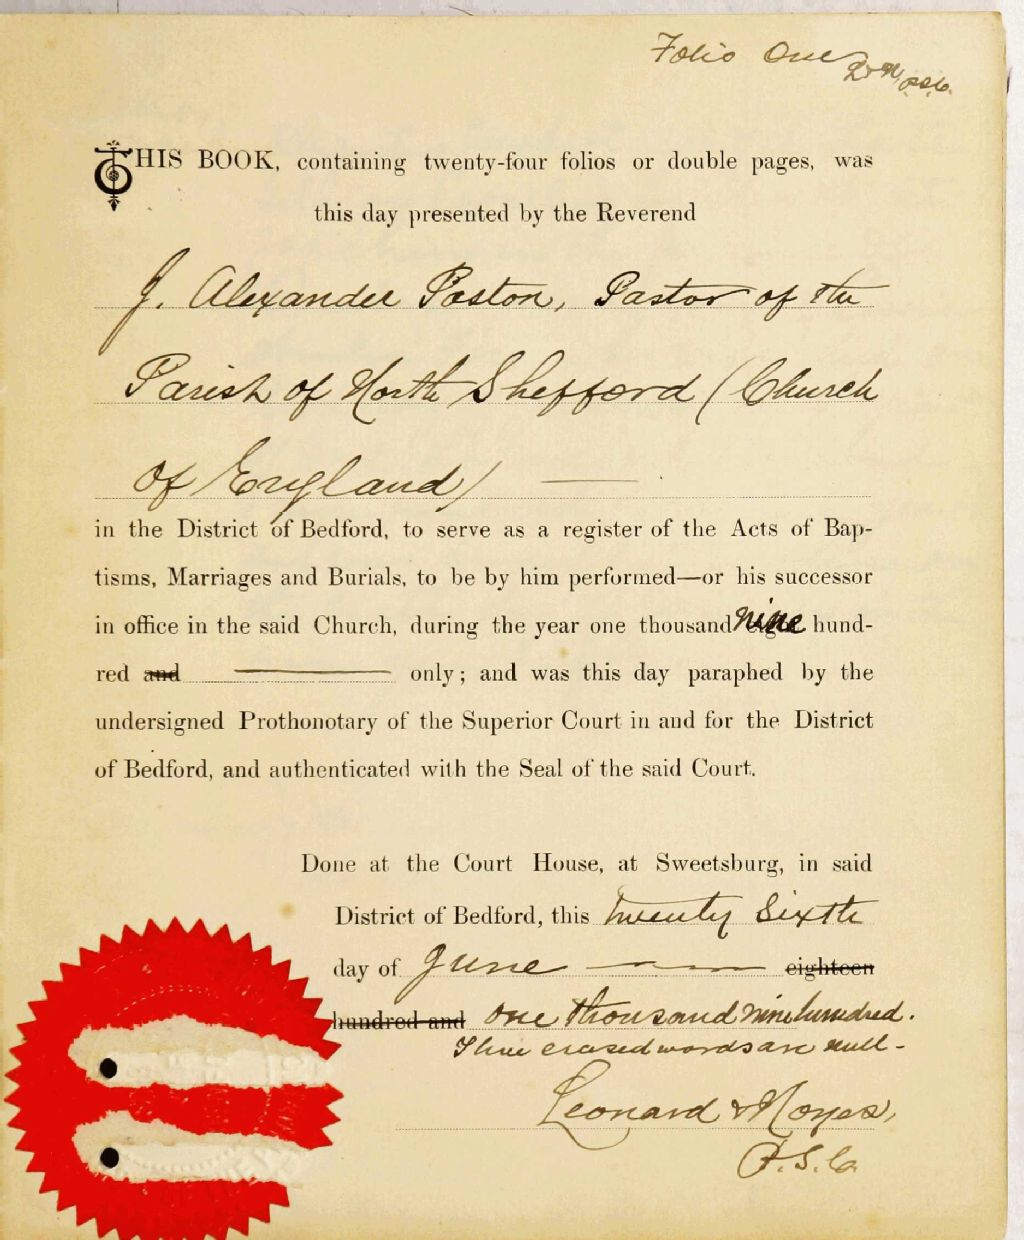 Folio One
L & N, P.S.C.
THIS BOOK, containing twenty-four folios or double pages, was
this day presented by the Reverend
J. Alexander Poston, Pastor of the
Parish of North Shefford (Church
of England)
in the District of Bedford, to serve as a register of the Acts of Bap-
tisms, Marriages and Burials, to be by him performed—or his successor
in office in the said Church, during the year one thousand nine hund-
red and only; and was this day paraphed by the
undersigned Prothonotary of the Superior Court in and for the District
of Bedford, and authenticated with the Seal of the said Court.
Done at the Court House, at Sweetsburg, in said
District of Bedford, this twenty sixth
day of June eighteen
hundred and one thousand nine hundred.
Three erased words are null-
Leonard & Noyes,
P.S.C.